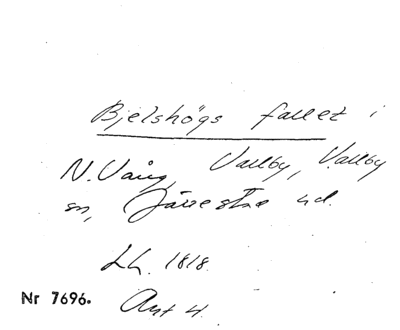 Bjelshögs fallet i
N. Vång, Vallby, Vallby
sn, Järrestad hd.
Lh. 1818.
Nr 7696. Akt 4.